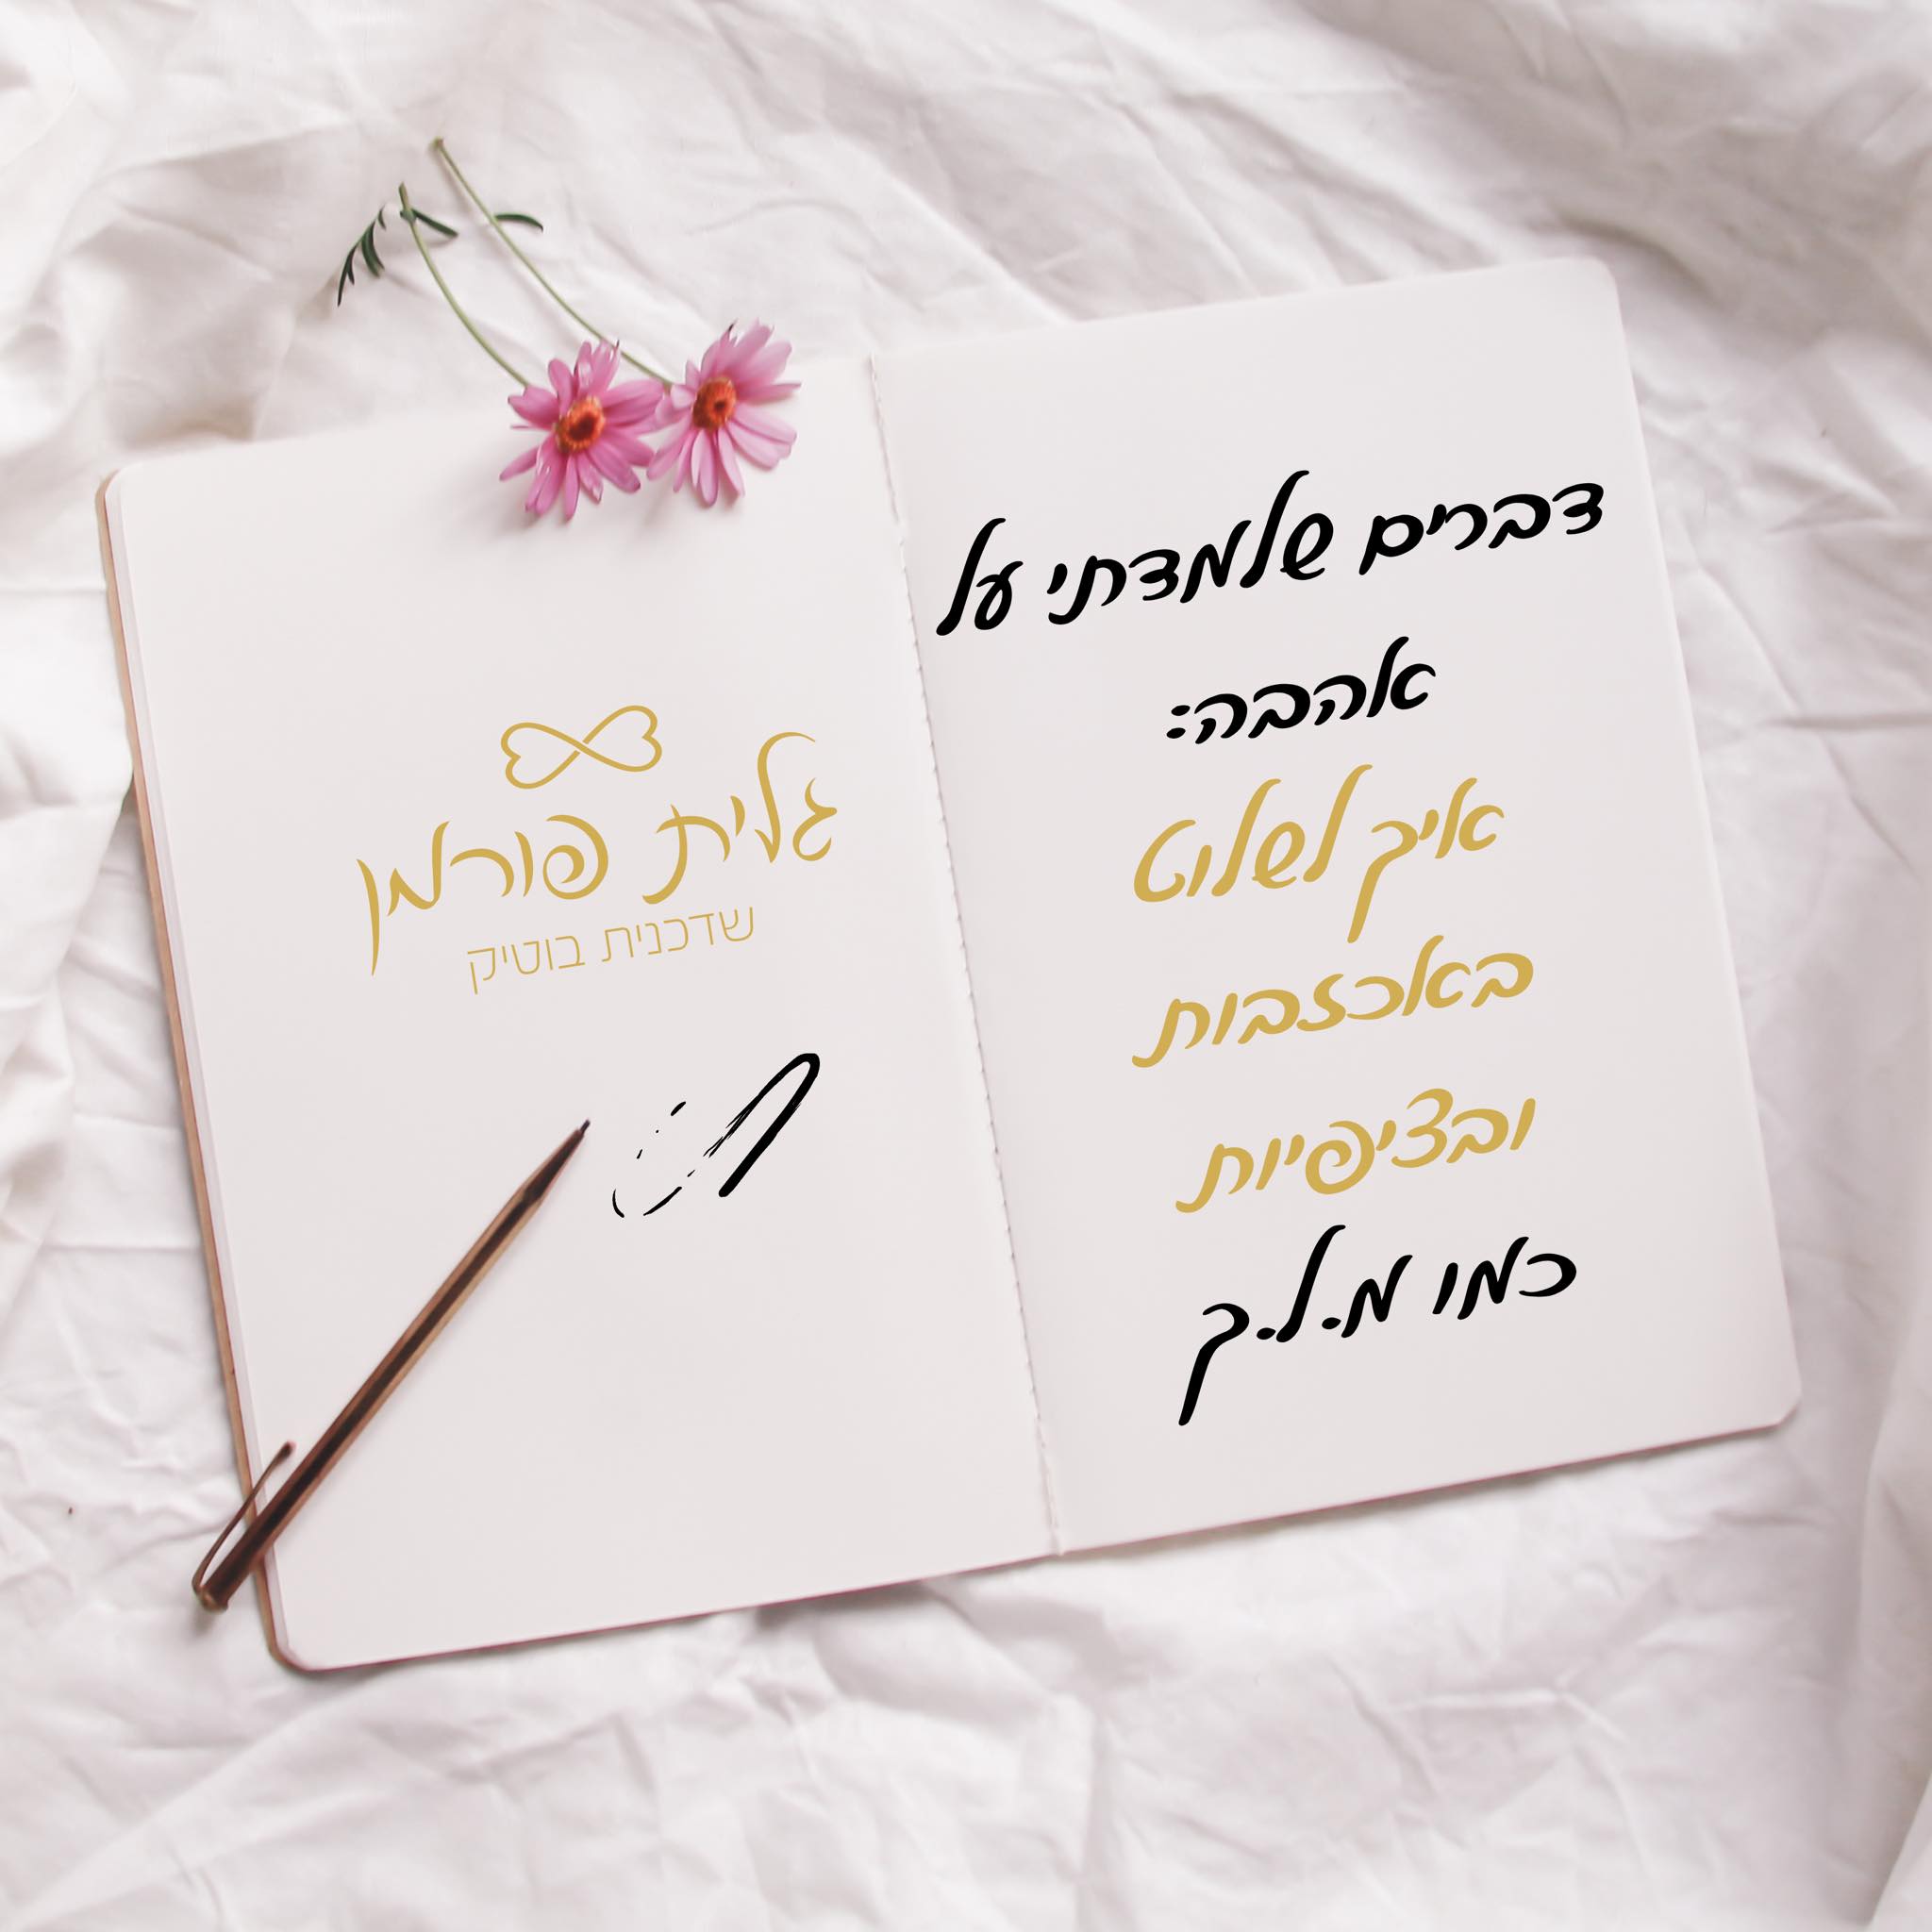 דברים שלמדתי על
אהבה:
איך לשלוט
באכזבות
ובציפיות
כמו מ.ל.ך
גלית פורמן
שדכנית בוטיק